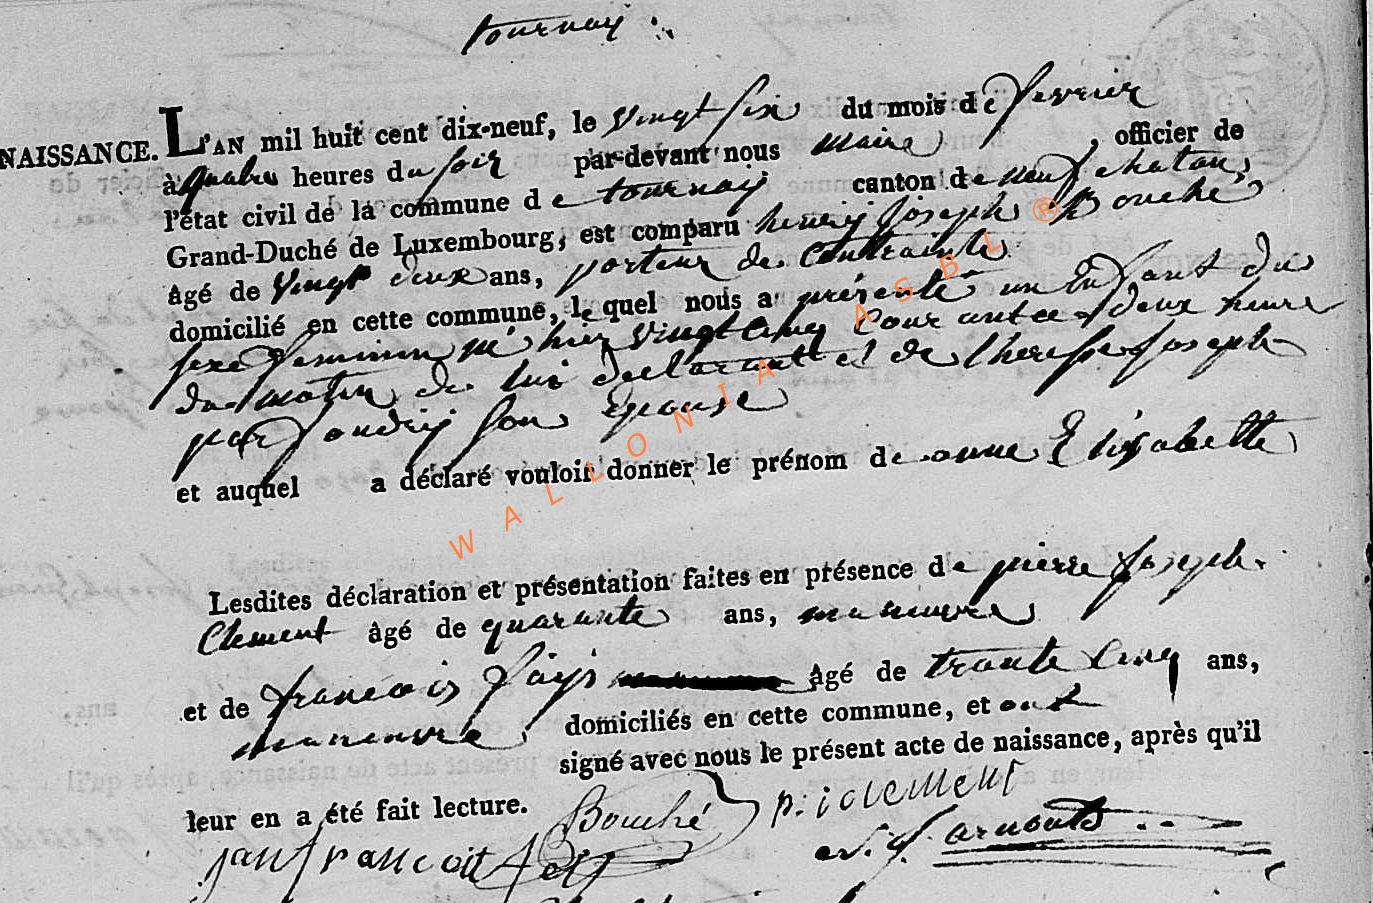 tournay
NAISSANCE. L'AN mil huit cent dix-neuf, le vingt six du mois de fevrier
à quatre heures du soir par-devant nous maire , officier de
l'état civil de la commune de tournay canton de neufchateau,
Grand-Duché de Luxembourg, est comparu henrij Joseph Bouché
âgé de vingt deux ans, porteur de Contrainte
domicilié en cette commune, lequel nous a présenté un Enfant du
sexe feminin né hier vingt cinq Courant a deux heure
du matin de lui declarant et de therese Joseph
parfondrij son Epouse
et auquel a déclaré vouloir donner le prénom de anne Elisabette
Lesdites déclaration et présentation faites en présence de pierre Joseph
Clement âgé de quarante ans, maneuvre
et de francois faijs âgé de trante cinq ans,
maneuvre domiciliés en cette commune, et ont
signé avec nous le présent acte de naissance, après qu'il
leur en a été fait lecture. Bouché p: j clement
janfrancoit
arnould
WALLONIA ASBL ®